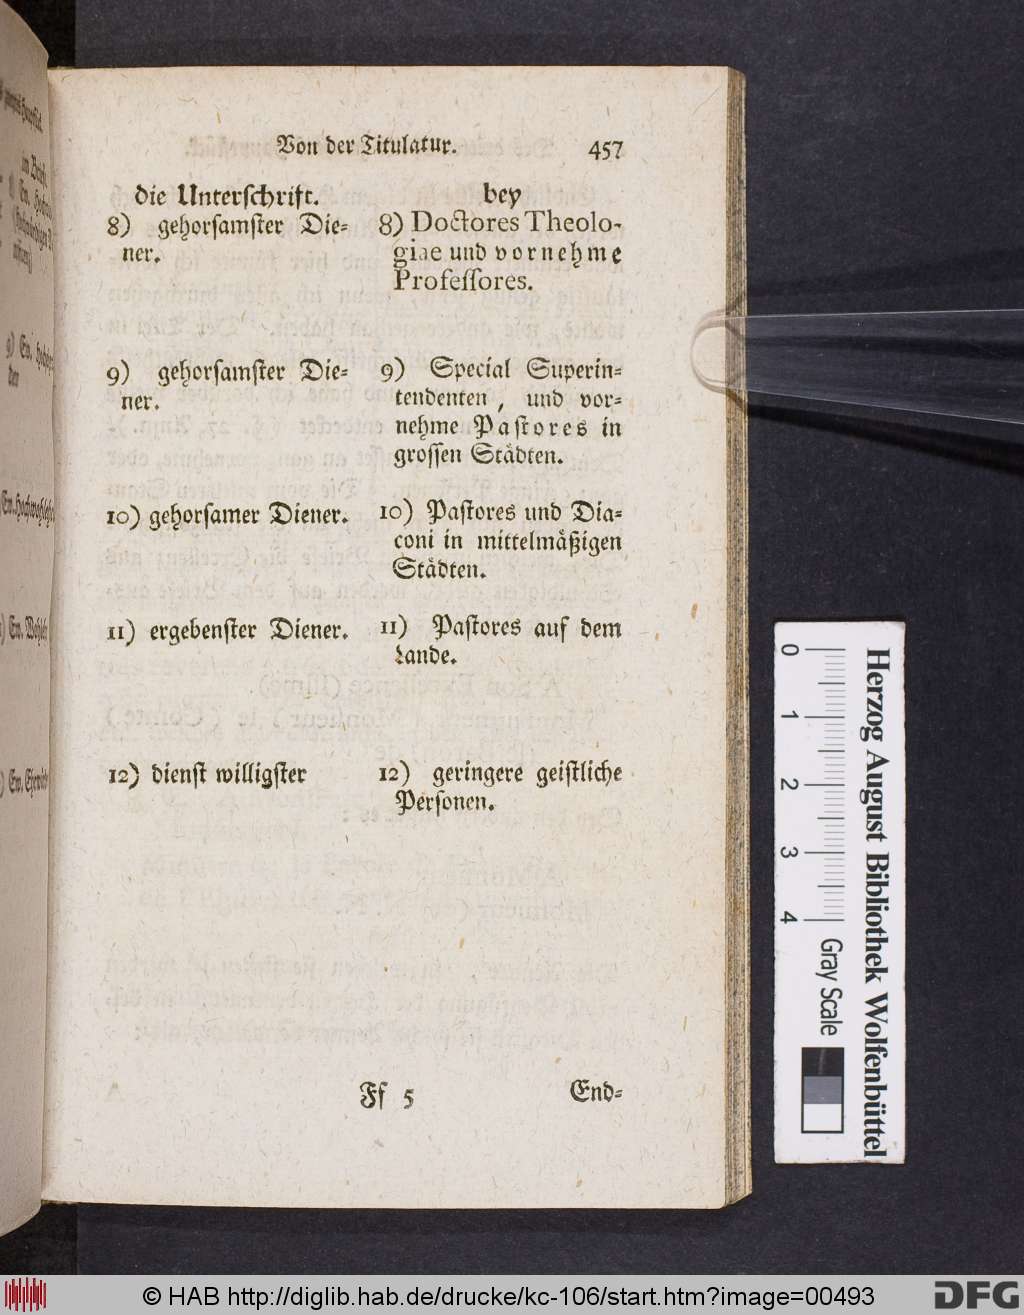 Von der Titulatur. 457
die Unterschrift.
8) gehorsamster Die⸗
ner.
9) gehorsamster Die⸗
ner.
10) gehorsamer Diener.
11) ergebenster Diener.
12) dienst willigster
bey
8) Doctores Theolo-
giae und vornehme
Professores.
9) Special Superin⸗
tendenten, und vor⸗
nehme Pastores in
grossen Städten.
10) Pastores und Dia⸗
coni in mittelmäßigen
Städten.
11) Pastores auf dem
Lande.
12) geringere geistliche
Personen.
Ff 5 End⸗
0 1 2 3 4 Gray Scale
Herzog August Bibliothek Wolfenbüttel
© HAB http://diglib.hab.de/drucke/kc-106/start.htm?image=00493
DFG